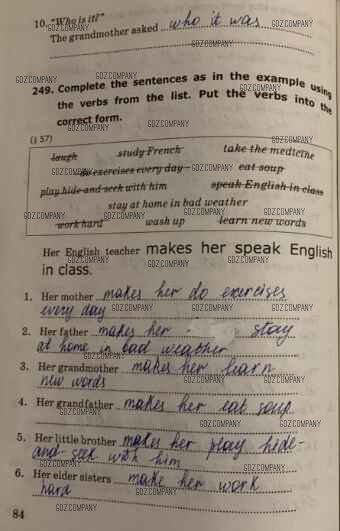 10. "Who is it?"
The grandmother asked who it was
GDZCOMPANY
GDZCOMPANY
GDZCOMPANY GDZCOMPANY
249. Complete the sentences as in the example using
GDZCOMPANY
the verbs from the list. Put the verbs into the
correct form.
GDZCOMPANY GDZCOMPANY
(§ 57)
GDZCOMPANY
laugh study French take the medicine
do exercises every day eat soup
GDZCOMPANY GDZCOMPANY
play hide-and-seek with him speak English in class
stay at home in bad weather
GDZCOMPANY GDZCOMPANY GDZCOMPANY
work hard wash up learn new words
Her English teacher makes her speak English
GDZCOMPANY GDZCOMPANY GDZCOMPANY
in class.
1. Her mother makes her do exercises
every day GDZCOMPANY GDZCOMPANY GDZCOMPANY
2. Her father makes her stay
at home in bad weather
GDZCOMPANY GDZCOMPANY
3. Her grandmother makes her learn
new words GDZCOMPANY GDZCOMPANY
4. Her grandfather makes her eat soup
GDZCOMPANY GDZCOMPANY GDZCOMPANY
5. Her little brother makes her play hide-
and-seek with him
GDZCOMPANY GDZCOMPANY
6. Her elder sisters make her work
hard GDZCOMPANY GDZCOMPANY
84
GDZCOMPANY